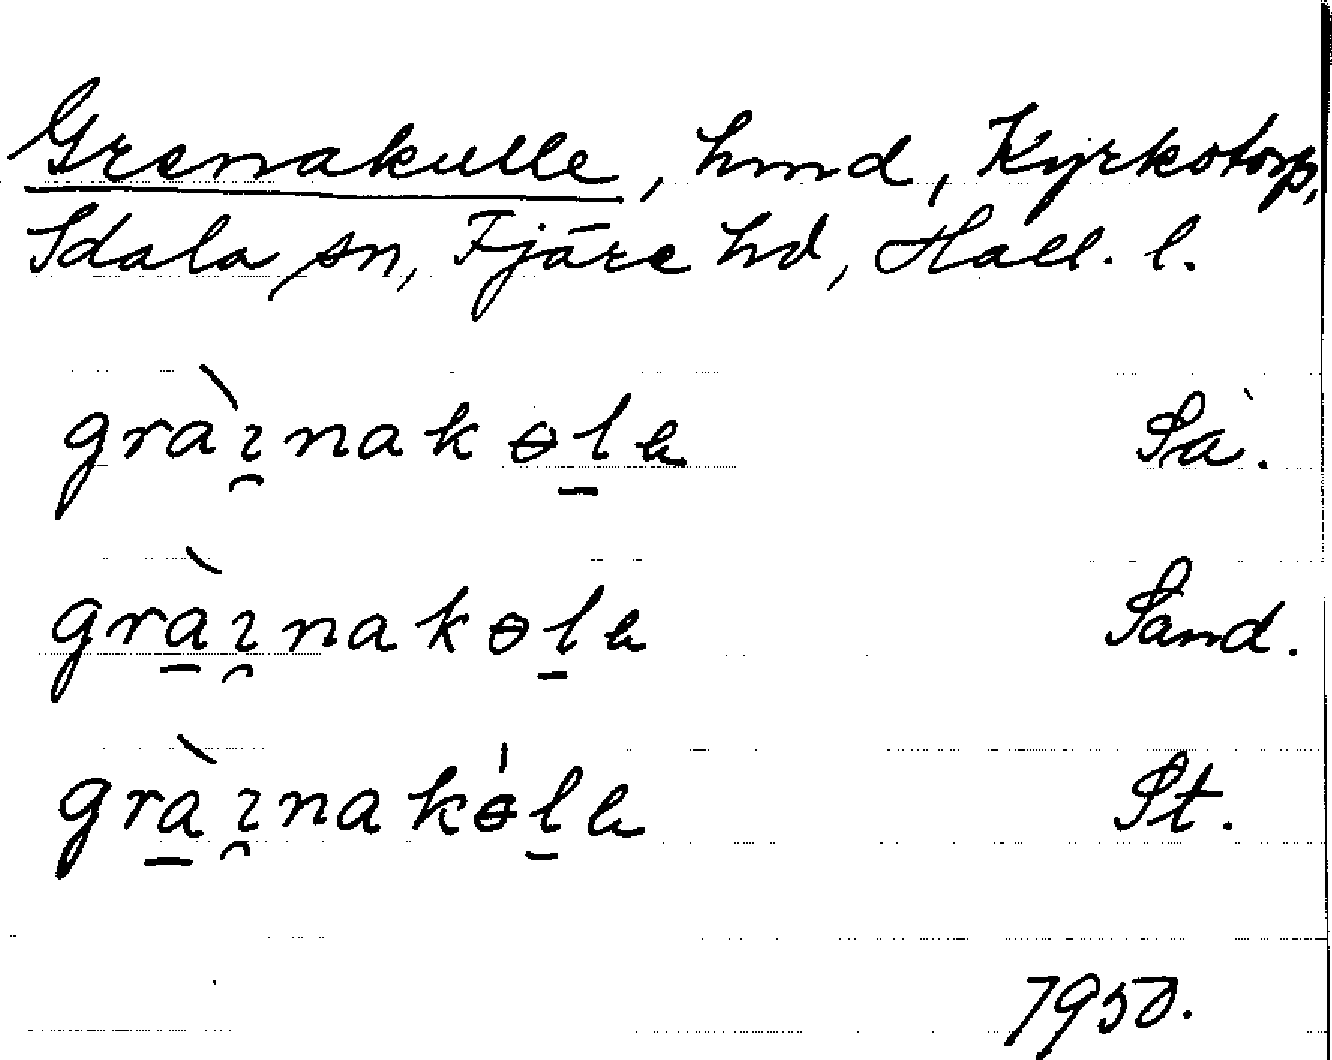 Grenakulle, hmd, Kyrkotorp,
Idala sn, Fjäre hd, Hall. l.
gràı̯nakɵl̲ɐ Så.
grà̲ı̯nakɵl̲ɐ Sand.
grà̲ı̯nakɵ́l̲ɐ St.
1950.